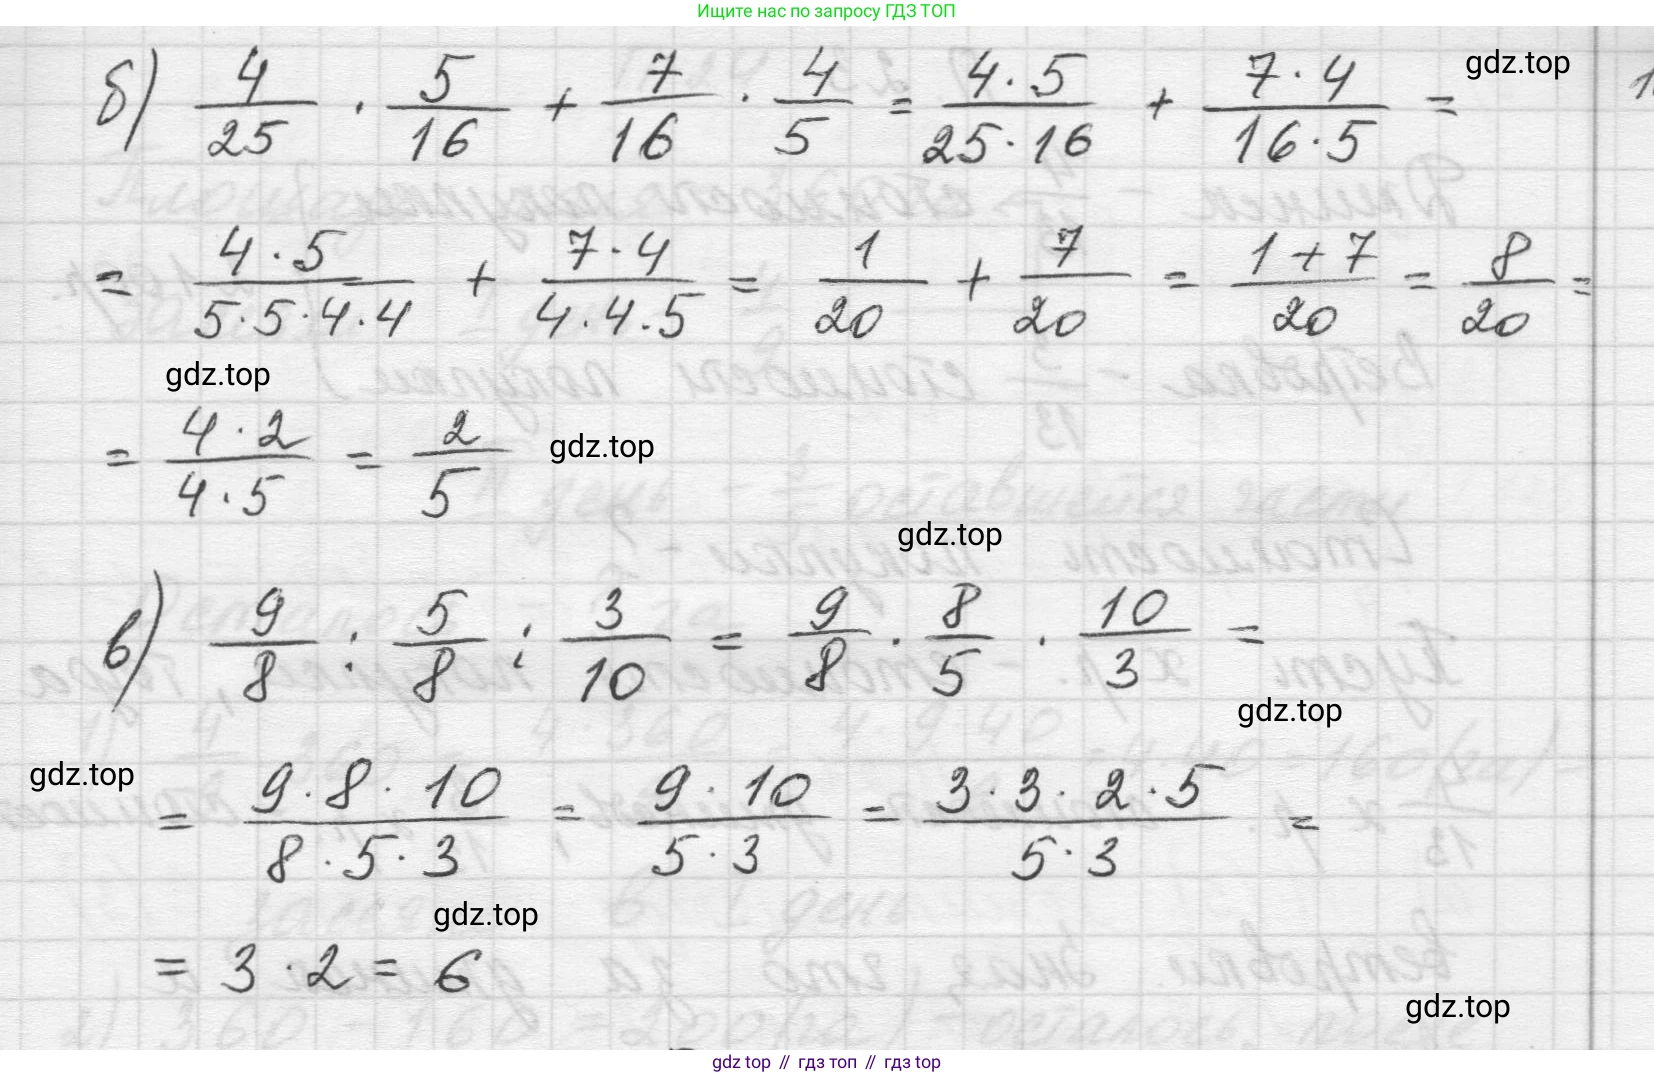 Ищите нас по запросу ГДЗ ТОП
б) 4/25 · 5/16 + 7/16 · 4/5 = 4·5/25·16 + 7·4/16·5 =
gdz.top
= 4·5/5·5·4·4 + 7·4/4·4·5 = 1/20 + 7/20 = 1+7/20 = 8/20 =
gdz.top
= 4·2/4·5 = 2/5
gdz.top
gdz.top
в) 9/8 : 5/8 : 3/10 = 9/8 · 8/5 · 10/3 =
gdz.top
gdz.top
= 9·8·10/8·5·3 = 9·10/5·3 = 3·3·2·5/5·3 =
gdz.top
= 3·2 = 6
gdz.top
gdz top // гдз топ // gdz top